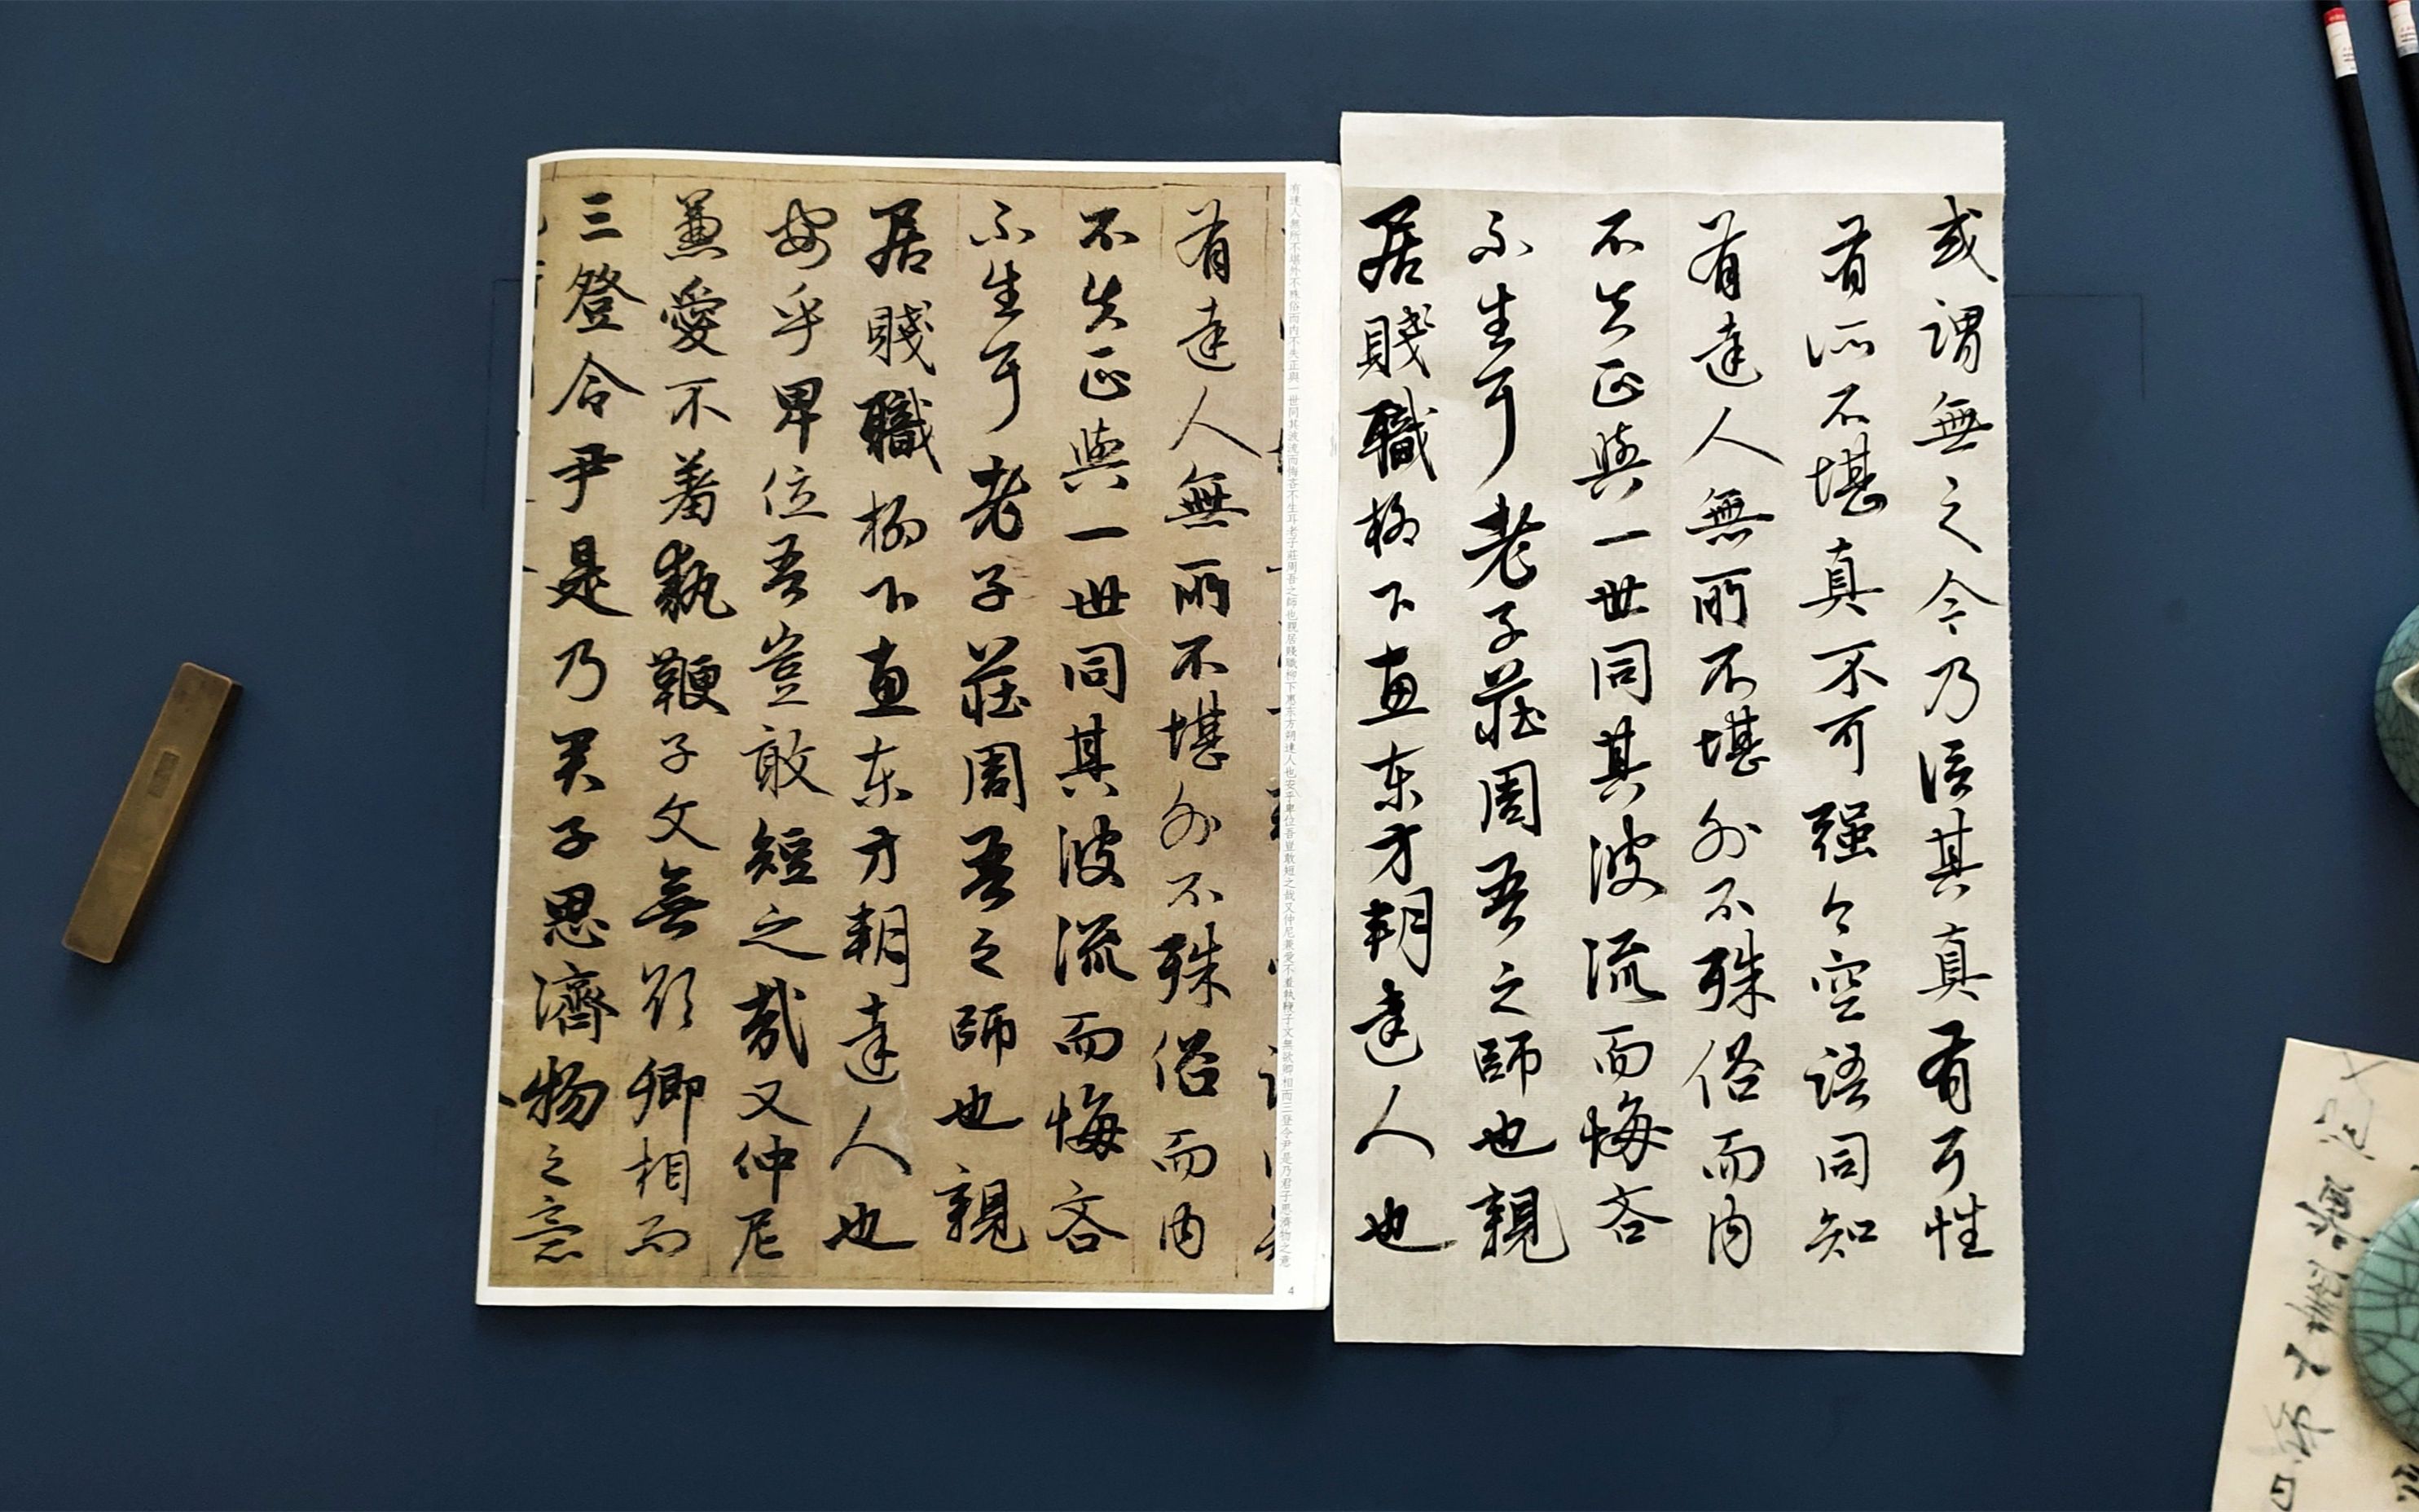 或謂無之今乃信其真有耳性
有所不堪真不可强今空語同知
有達人無所不堪外不殊俗而内
不失正與一世同其波流而悔吝
不生耳老子莊周吾之師也親
居賤職柳下惠東方朔達人也
有達人無所不堪外不殊俗而内不失正與一世同其波流而悔吝不生耳老子莊周吾之師也親居賤職柳下惠东方朔達人也安乎卑位吾豈敢短之哉又仲尼兼愛不羞執鞭子文無欲卿相而三登令尹是乃君子思濟物之意
4
有達人無所不堪外不殊俗而内
不失正與一世同其波流而悔吝
不生耳老子莊周吾之師也親
居賤職柳下惠東方朔達人也
安乎卑位吾豈敢短之哉又仲尼
兼愛不羞執鞭子文無欲卿相而
三登令尹是乃君子思濟物之意